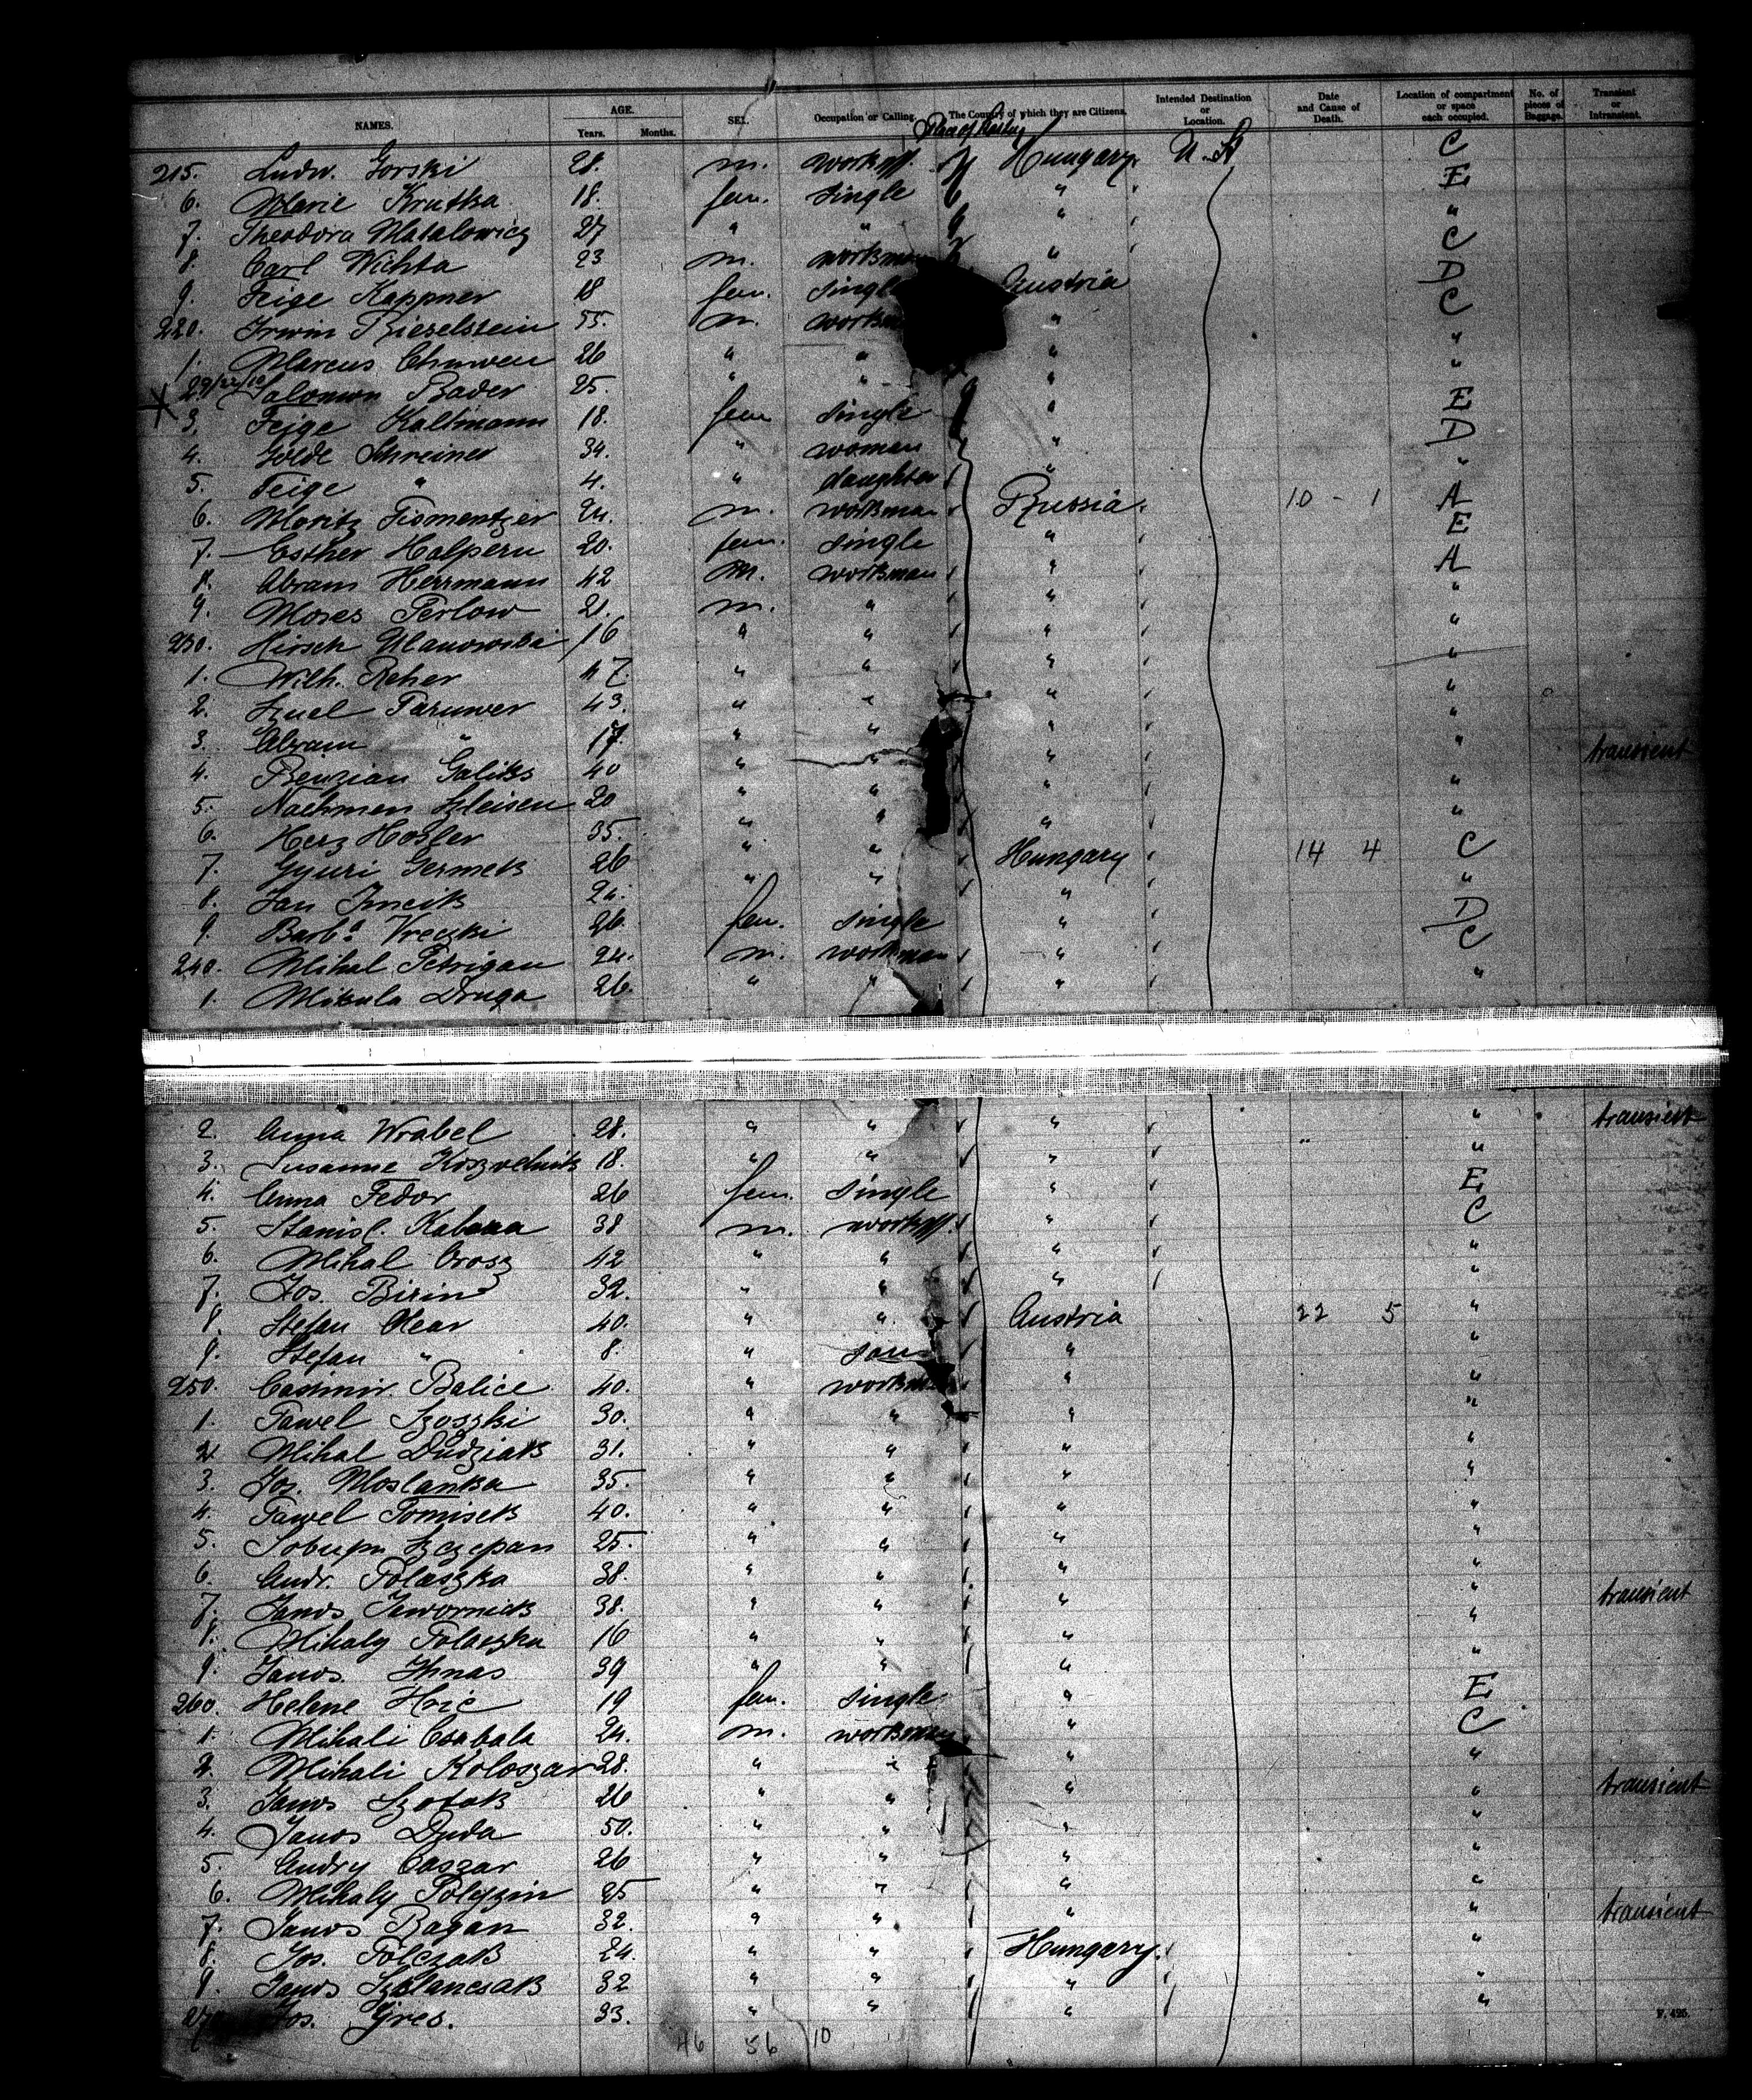 NAMES. AGE. Years. Months. SEX. Occupation or Calling. The Country of which they are Citizens. Intended Destination or Location. Date and Cause of Death. Location of compartment or space each occupied. No. of pieces of Baggage. Transient or Intransient.
Place of
215. Ludw. Gorski 28. m. Hungary. U. S. C
6. Marie Krutka 18. fem. single " E
7. Theodora Matalowicz 27 " " " "
8. Carl Wichta 23 m. workman " C
9. Feige Kappner 18 fem. single Austria D
220. Irwin Rieselstein 55. m. " C
1. Marcus 26 " " " "
Salomon Bader 25. " " " "
3. Feige Kaltmann 18. fem single " E
4. Golde Schreiner 34. " woman " D
5. Feige " 4. " daughter " "
6. Moritz Fismentzer 24. m. workman Russia. 10 - 1 A
7. Esther Halpern 20. fem. single " E
8. Abram Herrmann 42 m. workman " A
9. Moses Perlow 21. m. " " "
230. Hirsch Ulanowski 16 " " " "
1. Wilh. Reher 47. " " " "
2. Szuel Paruwer 43. " " " "
3. Abram " 17. " " " "
4. Benzian Galiks 40 " " " " transient
5. Nachmen Szleisen 20 " " " "
6. Herz Hosfer 35. " " " "
7. Gyuri Germek 26 " " Hungary 14 4 C
8. Jan 24. " " " "
9. Barba. Vreczki 26. fem. single " D
240. Mihal Petrigan 24. m. workman " C
1. Mikula Druga 26. " " " "
2. Anna Wrabel 28. " " " " transient
3. Susanne 18. " " " "
4. Anna Fedor 26 fem. single " E
5. Stanisl. 38 m. " C
6. Mihal Orosz 42 " " " "
7. Jos. Birin 32. " " " "
8. Stefan Olear 40. " " Austria 22 5 "
9. Stefan " 8. " son " "
250. Casimir Balice 40. " workman " "
1. Pawel Szoszki 30. " " " "
2 Mihal Dudziak 31. " " " "
3. Joz. Moslanka 35. " " " "
4. Pawel Tomisek 40. " " " "
5. Szczepan 25. " " " "
6. Andr. Polaszka 38. " " " "
7. Janos Jawornick 38. " " " " transient
8. Mihaly Polaszka 16 " " " "
9. Janos Ihnas 39 " " " "
260. Helene Hric 19 fem. single " E
1. Mihali Csabala 24. m. workman " C
2. Mihali Koloszar 28. " " " "
3. Janos Szotak 26 " " " " transient
4. Janos Duda 50. " " " "
5. Andry Caszar 26 " " " "
6. Mihaly 35 " " " "
7. Janos Bagan 32. " " " " transient
8. Jos. Polczak 24. " " Hungary. "
9. Janos Szalancsak 32 " " " "
270 Jos. 33. " " " "
46 56 10
F. 425.